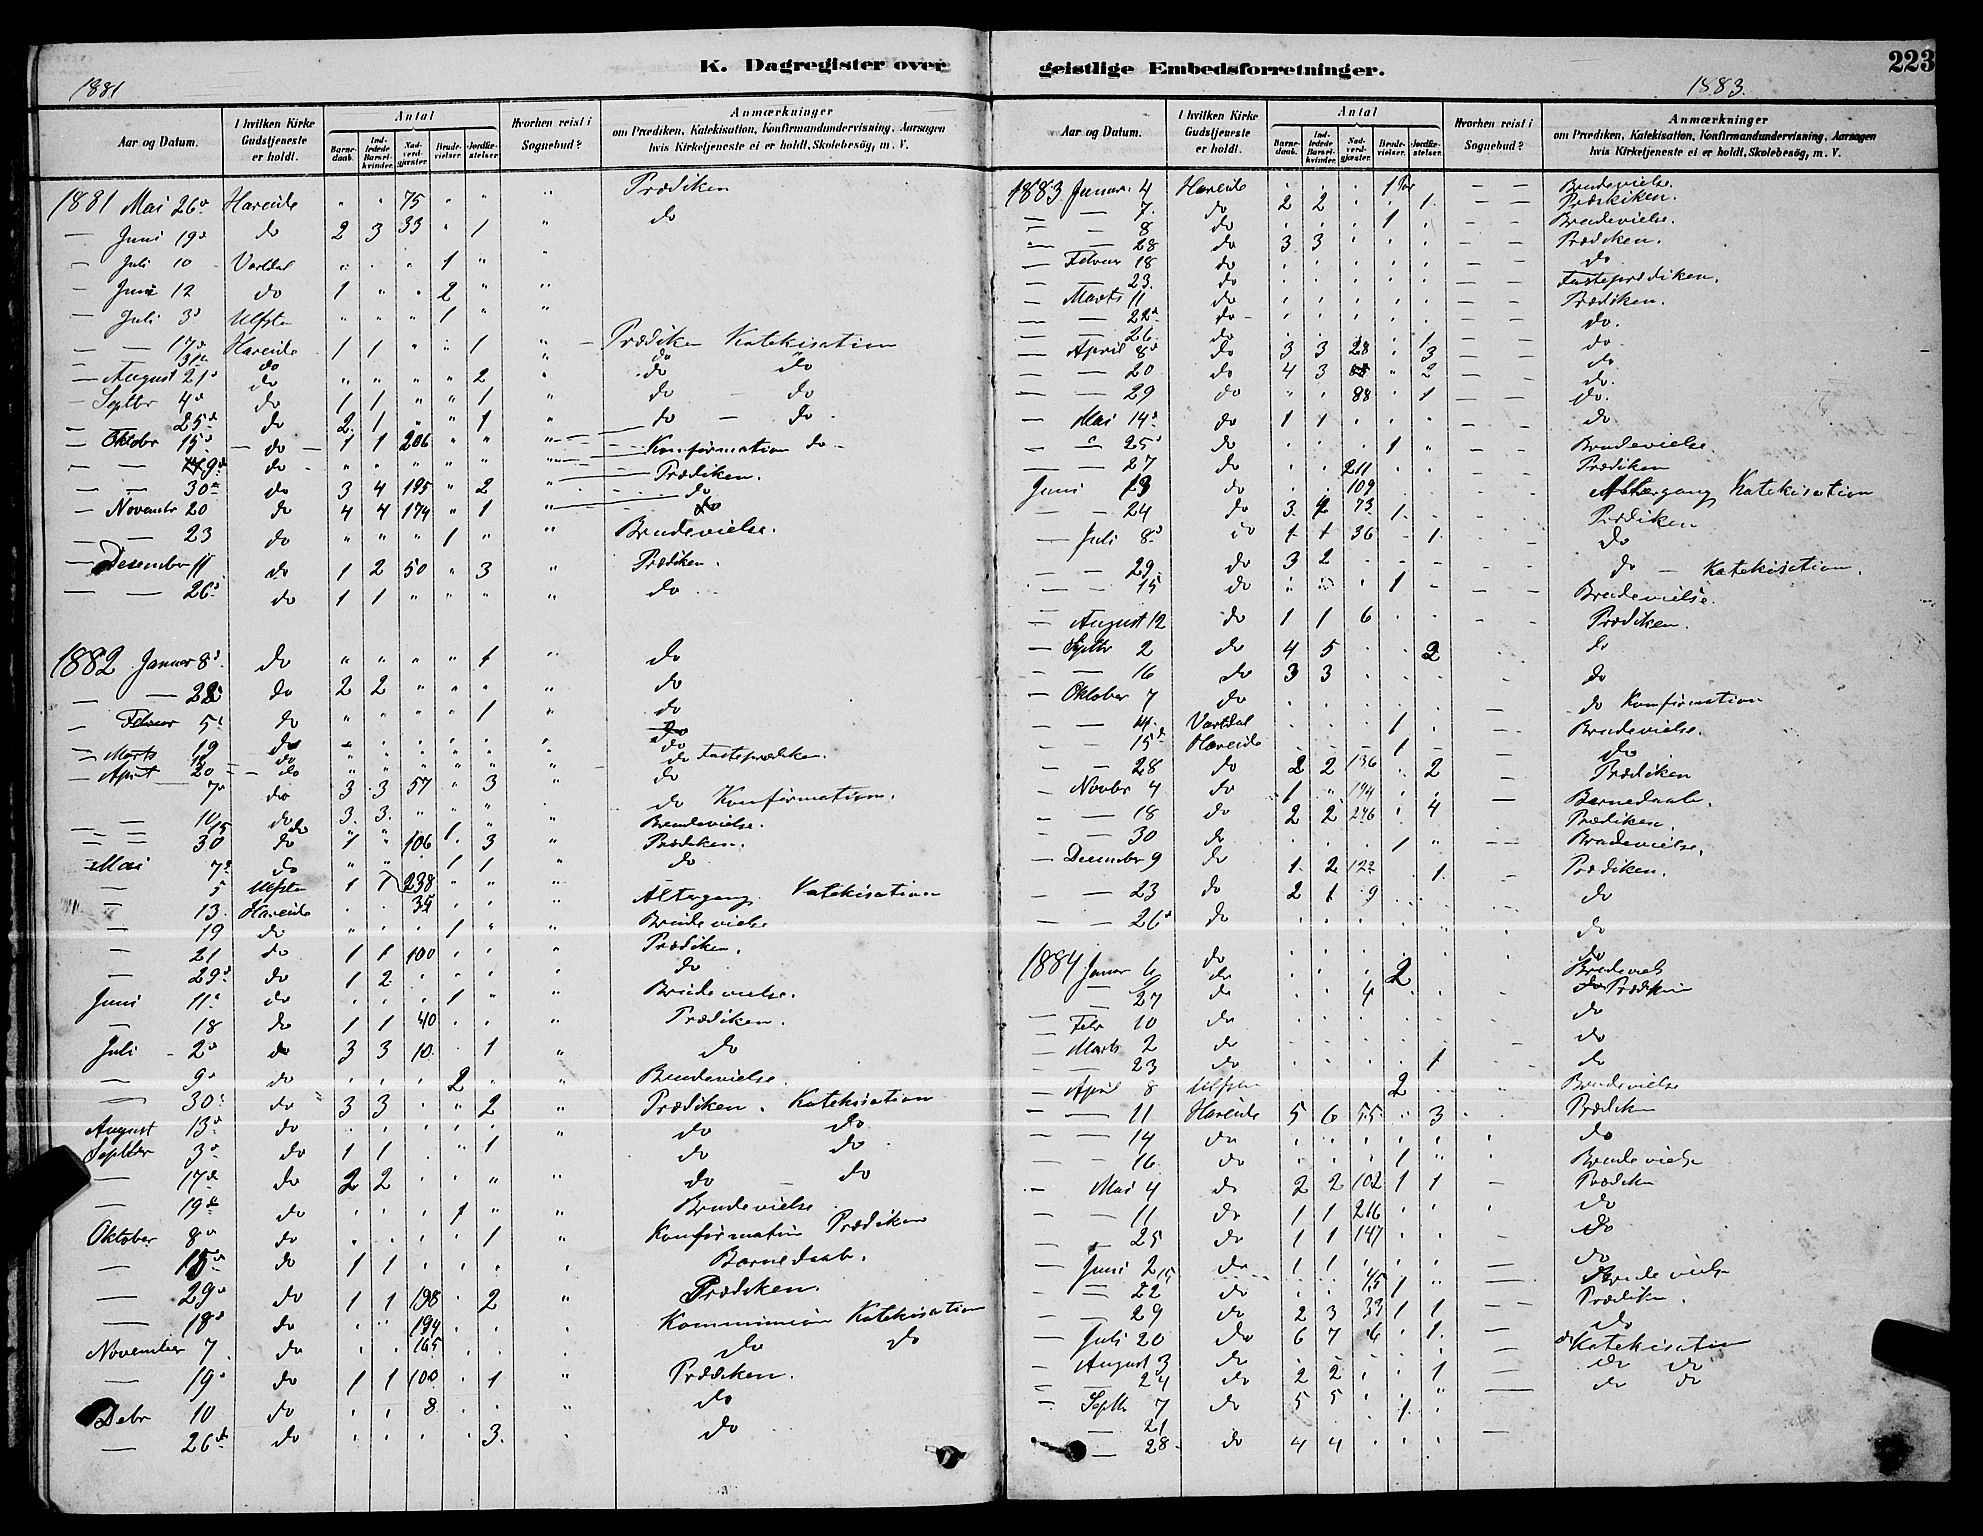 K. Dagregister over geistlige Embedsforretninger.
223
1881
1883.
Aar og Datum. | I hvilken Kirke Gudstjeneste er holdt. | Antal | Barnedaab. | Indledede Barselkvinder. | Nadverdgjæster. | Brudevielser. | Jordfæstelser. | Hvorhen reist i Sognebud? | Anmærkninger om Prædiken, Katekisation, Konfirmandundervisning, Aarsagen hvis Kirketjeneste ei er holdt, Skolebesög, m. V.
1881 Mai 26 Hareide " " 75 " " " Prædiken
— Juni 19 do 2 3 33 " 1 " do
— Juli 10 Vartdal " " " 1 " "
— Juni 12 do 1 " " 2 " "
— Juli 3 Ulfsten " " " 1 " "
— — 17 Hareide 1 1 " " 1 " Prædiken Katekisation
31 do do do
— August 21 do " " " " 2 " do do
— Septbr 4 do 1 1 " " 1 " do — do
— 25 do 2 1 " " 1 " do — do
— Oktobr 15 — do — 1 1 206 " " " Konfirmation do
— — 9 do " " " " " " Prædiken.
— — 30 do 3 4 195 " 2 " do
— Novembr 20 do 4 4 174 " 1 " do
— — 23 do " " " 1 " " Brudevielse.
— Desember 11 do 1 2 50 " 3 " Prædiken.
— — 26 do 1 1 " " " " do
1882 Januar 8 do " " " " 1 " do
— — 22 do 2 2 " " " " do
— Februar 5 do " " " " 1 " do
— 19 do do
— Marts 12 do do Fasteprædiken.
— April 20 — do do
7 do 3 3 57 " 3 do Konfirmation.
— — 10 do 3. 3. " " "
15 do " " " 1. " Brudevielse.
— — 30 do 1 " 106 " 3 " Prædiken.
— Mai 7 do " " " 1 1 " do
— 5 Ulfsten 1 1 238 " " " Altergang Katekisation
— 13 Hareide . . 39 . . "
— 19 do " . . 1 " " Brudevielse
— 21 do 1 1 100 . . " Prædiken.
— 29 do 1 2 . . . " do
Juni 11 do . . . 1 " " Brudevielse.
— 18 do 1 1 40 . . " Prædiken.
Juli - 2 do 3 3 10. . 1 " do
— 9 do . . . 2 " " Brudevielse.
— 30 do 3 3 . " 2 " Prædiken. Katekisation
August 13 do . . . . . " do do
Septbr 3 do 1 1 . " 1 do do
— 17 do 2 2 . . " " do — do
— 19 do . . . 1 " " Brudevielse
Oktober 8 do . . . . 1 " Konfirmation Prædiken
— 15 do 1 1 . . . . Barnedaab.
— 29 do 1 1 198 . 2 " Prædiken.
— 18 do . " 194 . . . Kommunion Katekisation
November 7 do . . 165 . . . do do
— 19 do 1 1 100 . 1 " Prædiken.
Debr 10 do . . 8. . . " do
— 26 do . . . . 3. . do
Aar og Datum. | I hvilken Kirke Gudstjeneste er holdt. | Antal | Barnedaab. | Indledede Barselkvinder. | Nadverdgjæster. | Brudevielser. | Jordfæstelser. | Hvorhen reist i Sognebud? | Anmærkninger om Prædiken, Katekisation, Konfirmandundervisning, Aarsagen hvis Kirketjeneste ei er holdt, Skolebesög, m. V.
1883 Januar 4 Hareide . . . 1 — — Brudevielse.
— — 7. do 2 2 . . 1. — — Prædiken.
— — 8 do . . . 1 . Brudevielse.
— — 28 do 3 3 . . . — — Prædiken.
— Februar 18 do . . . . . — — do
— — 23. do . . . . . — — Fasteprædiken.
— Marts 11 do . . . . . — — Prædiken.
— — 22 do . . . . . — — do.
— — 26. do . . . . 1. — — do.
— April 8 do 3 3 28 . 3 — — do
— — 20 do 4 3 " 2 — — do.
— — 29 do " . 88 . 1 — — do.
— Mai 14 do 1 1 . . " do
— 25 do . . . 1 " Brudevielse
— — 27 do . . 211 . . Prædiken
Juni 13 do . . 109 . . Altergang Katekisation
— — 24 do 3. 2 73 1. . Prædiken
— Juli 8 do 1 1 36 . 1. do
— — 29. do 3 2 . . . do — Katekisation.
— — 15 do . . . 1 . Brudevielse.
— August 12 do 1 1 6 . . Prædiken.
— Septbr 2 do 4 5 . . 2 do
— — 16 do 3 3 . . . do
— Oktober 7 do . . . . . do Konfirmation
— — 14. Vartdal . . . 1 . Brudevielse.
— — 15 Hareide . . . 1 . do
— — 28 do 2 2 136 . 2 Prædiken
— Novbr 4 do 1 " 194 . . Barnedaab.
— — 18 do 2 2 246 . 4 Prædiken.
— — 30 do . . . 1 " Brudevielse.
— December 9 do 1. 2 122 . 1. Prædiken.
— — 23 do 2 1 9 . . do
— — 26 do . . . . . do
1884 Januar 6 do . . . . . do
— 9 do . . . 2 . Brudevielse
— 27 do . . 4 . . Prædiken
— Febr 10 do . . . . . do
— Marts 2 do . . . . . do
— 23 do . . . . 1 do
— April 8 Ulfsten . . . 2 . Brudevielse
— — 11 Hareide 5 6 55 " 3 Prædiken
— — 14 do . . . . . do
— — 16 do . . . 1 " Brudevielse
— Mai 4 do 2 2 102 1 1 Prædiken
— 11 do 1 1 216 . . do
— 25 do 1 1 147 . . do
— Juni 2 do 1 1 . . . do
15 45 1 " Brudevielse
— 22 do Prædiken.
— 29 do 2 3 33 1 1 do
— Juli 20 do 6 7 6 . 1. Katekisation
— August 3 do . . . . . do do
— 24 do 2 2 . . 1 do do
— Septbr 7 do 5 5 . . "
— 21 1.
— 28 do 4 4 . . .